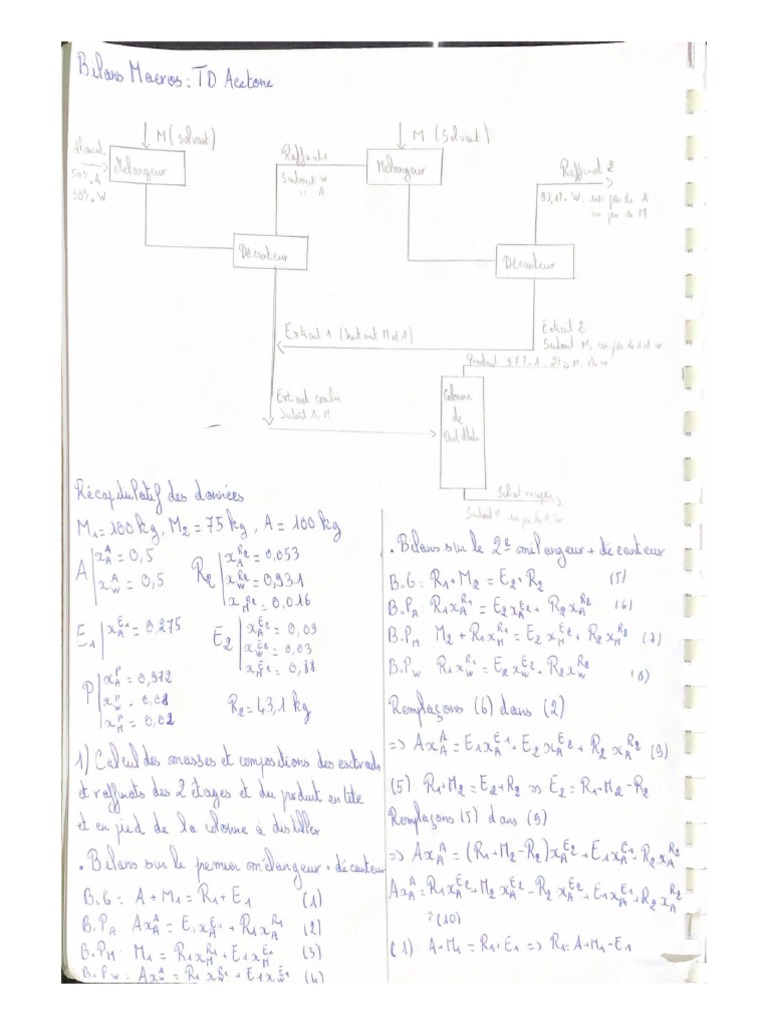 Bilans Macros : TD Acetone
M (Solvant)
M (Solvant)
50%. A
50%. W
Mélangeur
Raffinat 1
Surtout W
" A
Mélangeur
Raffinat 2
93,1%. W, un peu de A
un peu de M
Décanteur
Décanteur
Extrait 1 (Surtout M et A)
Extrait 2
Surtout M, un peu de A et W
Extrait combiné
Surtout A, M
Colonne
de
Récapitulatif des données
M1 = 100 kg, M2 = 75 kg, A = 100 kg
A | x_A^A = 0,5
x_W^A = 0,5
R2 | x_A^R2 = 0,053
x_W^R2 = 0,931
x_M^R2 = 0,016
E1 | x_A^E1 = 0,275
E2 | x_A^E2 = 0,09
x_W^E2 = 0,03
x_M^E2 = 0,88
P | x_A^P = 0,972
x_W^P = 0,08
x_M^P = 0,02
R2 = 43,1 kg
1) Calcul des masses et compositions des extraits
et raffinats des 2 étages et du produit en tête
et en pied de la colonne à distiller
. Bilans sur le premier mélangeur + décanteur
B.G : A + M1 = R1 + E1 (1)
B.P_A : A x_A^A = E1 x_A^E1 + R1 x_A^R1 (2)
B.P_M : M1 = R1 x_M^R1 + E1 x_M^E1 (3)
B.P_W : A x_W^A = R1 x_W^R1 + E1 x_W^E1 (4)
. Bilans sur le 2e mélangeur + décanteur
B.G : R1 + M2 = E2 + R2 (5)
B.P_A : R1 x_A^R1 = E2 x_A^E2 + R2 x_A^R2 (6)
B.P_M M2 + R1 x_M^R1 = E2 x_M^E2 + R2 x_M^R2 (7)
B.P_W : R1 x_W^R1 = E2 x_W^E2 + R2 x_W^R2 (8)
Remplaçons (6) dans (2)
=> A x_A^A = E1 x_A^E1 + E2 x_A^E2 + R2 x_A^R2 (9)
(5) : R1 + M2 = E2 + R2 => E2 = R1 - M2 - R2
Remplaçons (5) dans (9)
=> A x_A^A = (R1 + M2 - R2) x_A^E2 + E1 x_A^E1 + R2 x_A^R2
A x_A^A = R1 x_A^E2 + M2 x_A^E2 - R2 x_A^E2 + E1 x_A^E1 + R2 x_A^R2
(10)
(1) A + M1 = R1 + E1 => R1 = A + M1 - E1